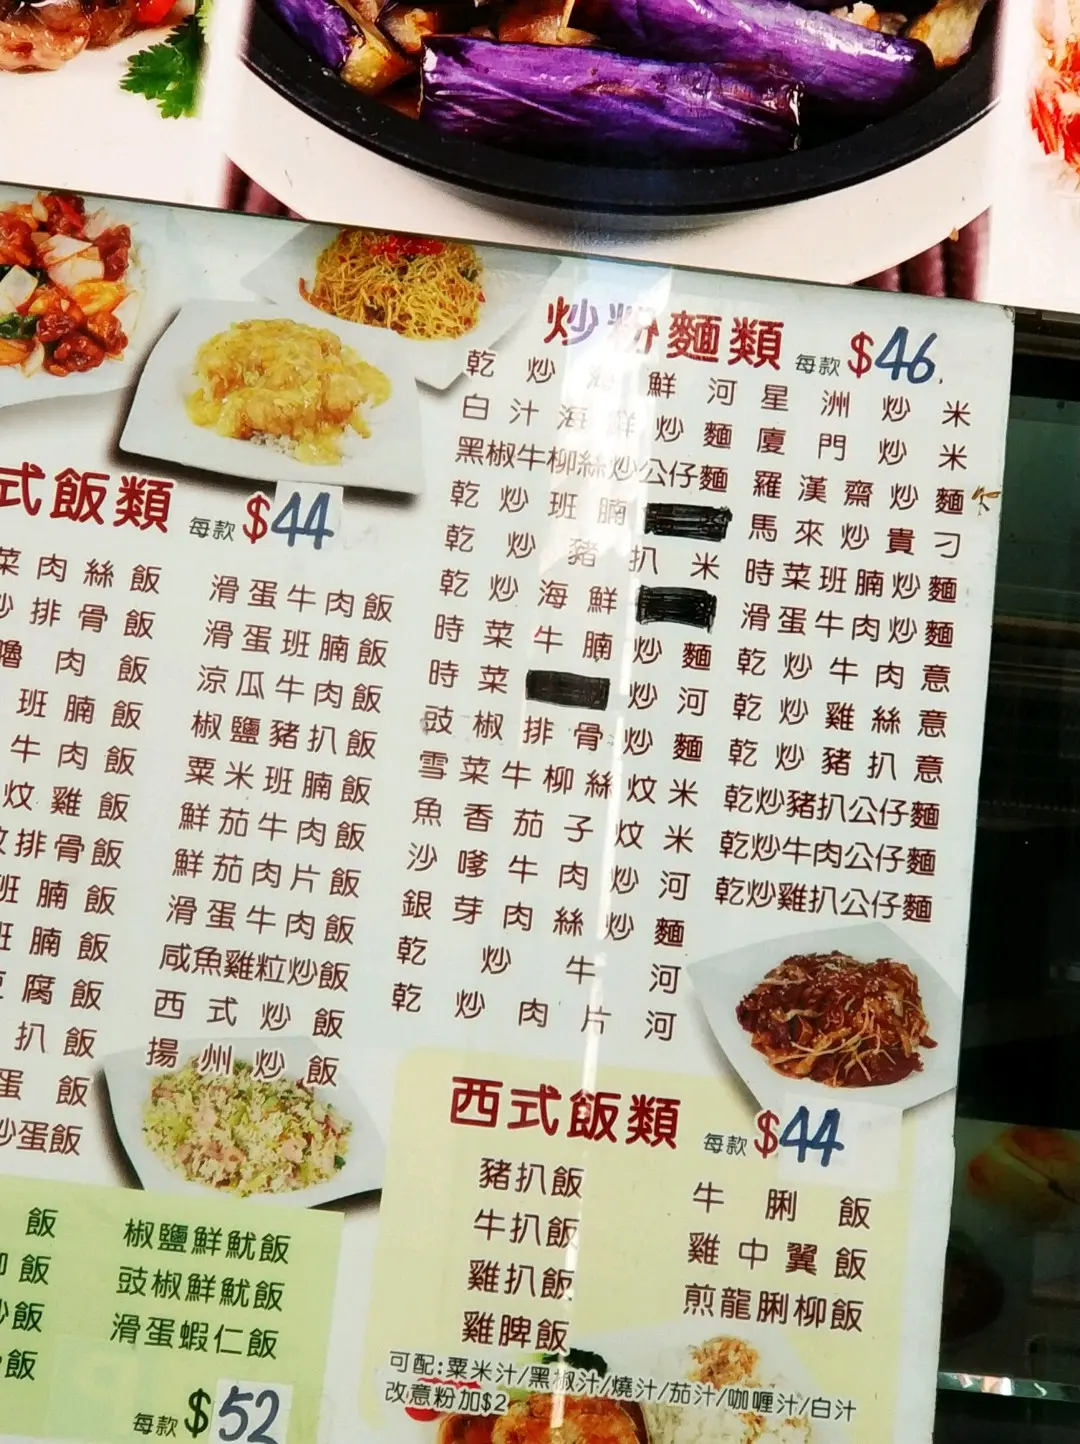 炒粉麵類 每款 $46
乾炒海鮮河
白汁海鮮炒麵
黑椒牛柳絲炒公仔麵
乾炒班腩
乾炒豬扒米
乾炒海鮮
時菜牛腩炒麵
時菜 炒河
豉椒排骨炒麵
雪菜牛柳絲炆米
魚香茄子炆米
沙嗲牛肉炒河
銀芽肉絲炒麵
乾炒牛河
乾炒肉片河
星洲炒米
廈門炒米
羅漢齋炒麵
馬來炒貴刁
時菜班腩炒麵
滑蛋牛肉炒麵
乾炒牛肉意
乾炒雞絲意
乾炒豬扒意
乾炒豬扒公仔麵
乾炒牛肉公仔麵
乾炒雞扒公仔麵
式飯類 每款 $44
菜肉絲飯
排骨飯
嚕肉飯
班腩飯
牛肉飯
炆雞飯
排骨飯
班腩飯
班腩飯
腐飯
扒飯
蛋飯
炒蛋飯
滑蛋牛肉飯
滑蛋班腩飯
涼瓜牛肉飯
椒鹽豬扒飯
粟米班腩飯
鮮茄牛肉飯
鮮茄肉片飯
滑蛋牛肉飯
咸魚雞粒炒飯
西式炒飯
揚州炒飯
飯
飯
炒飯
飯
椒鹽鮮魷飯
豉椒鮮魷飯
滑蛋蝦仁飯
每款 $52
西式飯類 每款 $44
豬扒飯
牛扒飯
雞扒飯
雞脾飯
牛脷飯
雞中翼飯
煎龍脷柳飯
可配:粟米汁/黑椒汁/燒汁/茄汁/咖喱汁/白汁
改意粉加$2